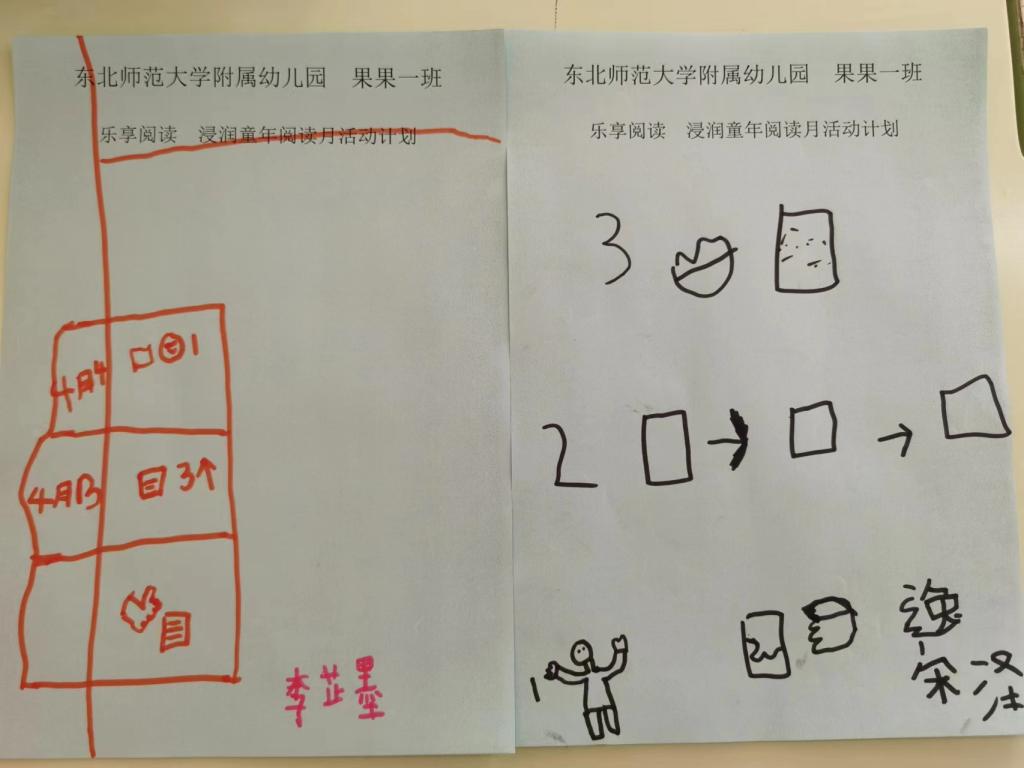 东北师范大学附属幼儿园 果果一班
乐享阅读 浸润童年阅读月活动计划
4月4
1
4月13
3个
李芷墨
东北师范大学附属幼儿园 果果一班
乐享阅读 浸润童年阅读月活动计划
3
2
1